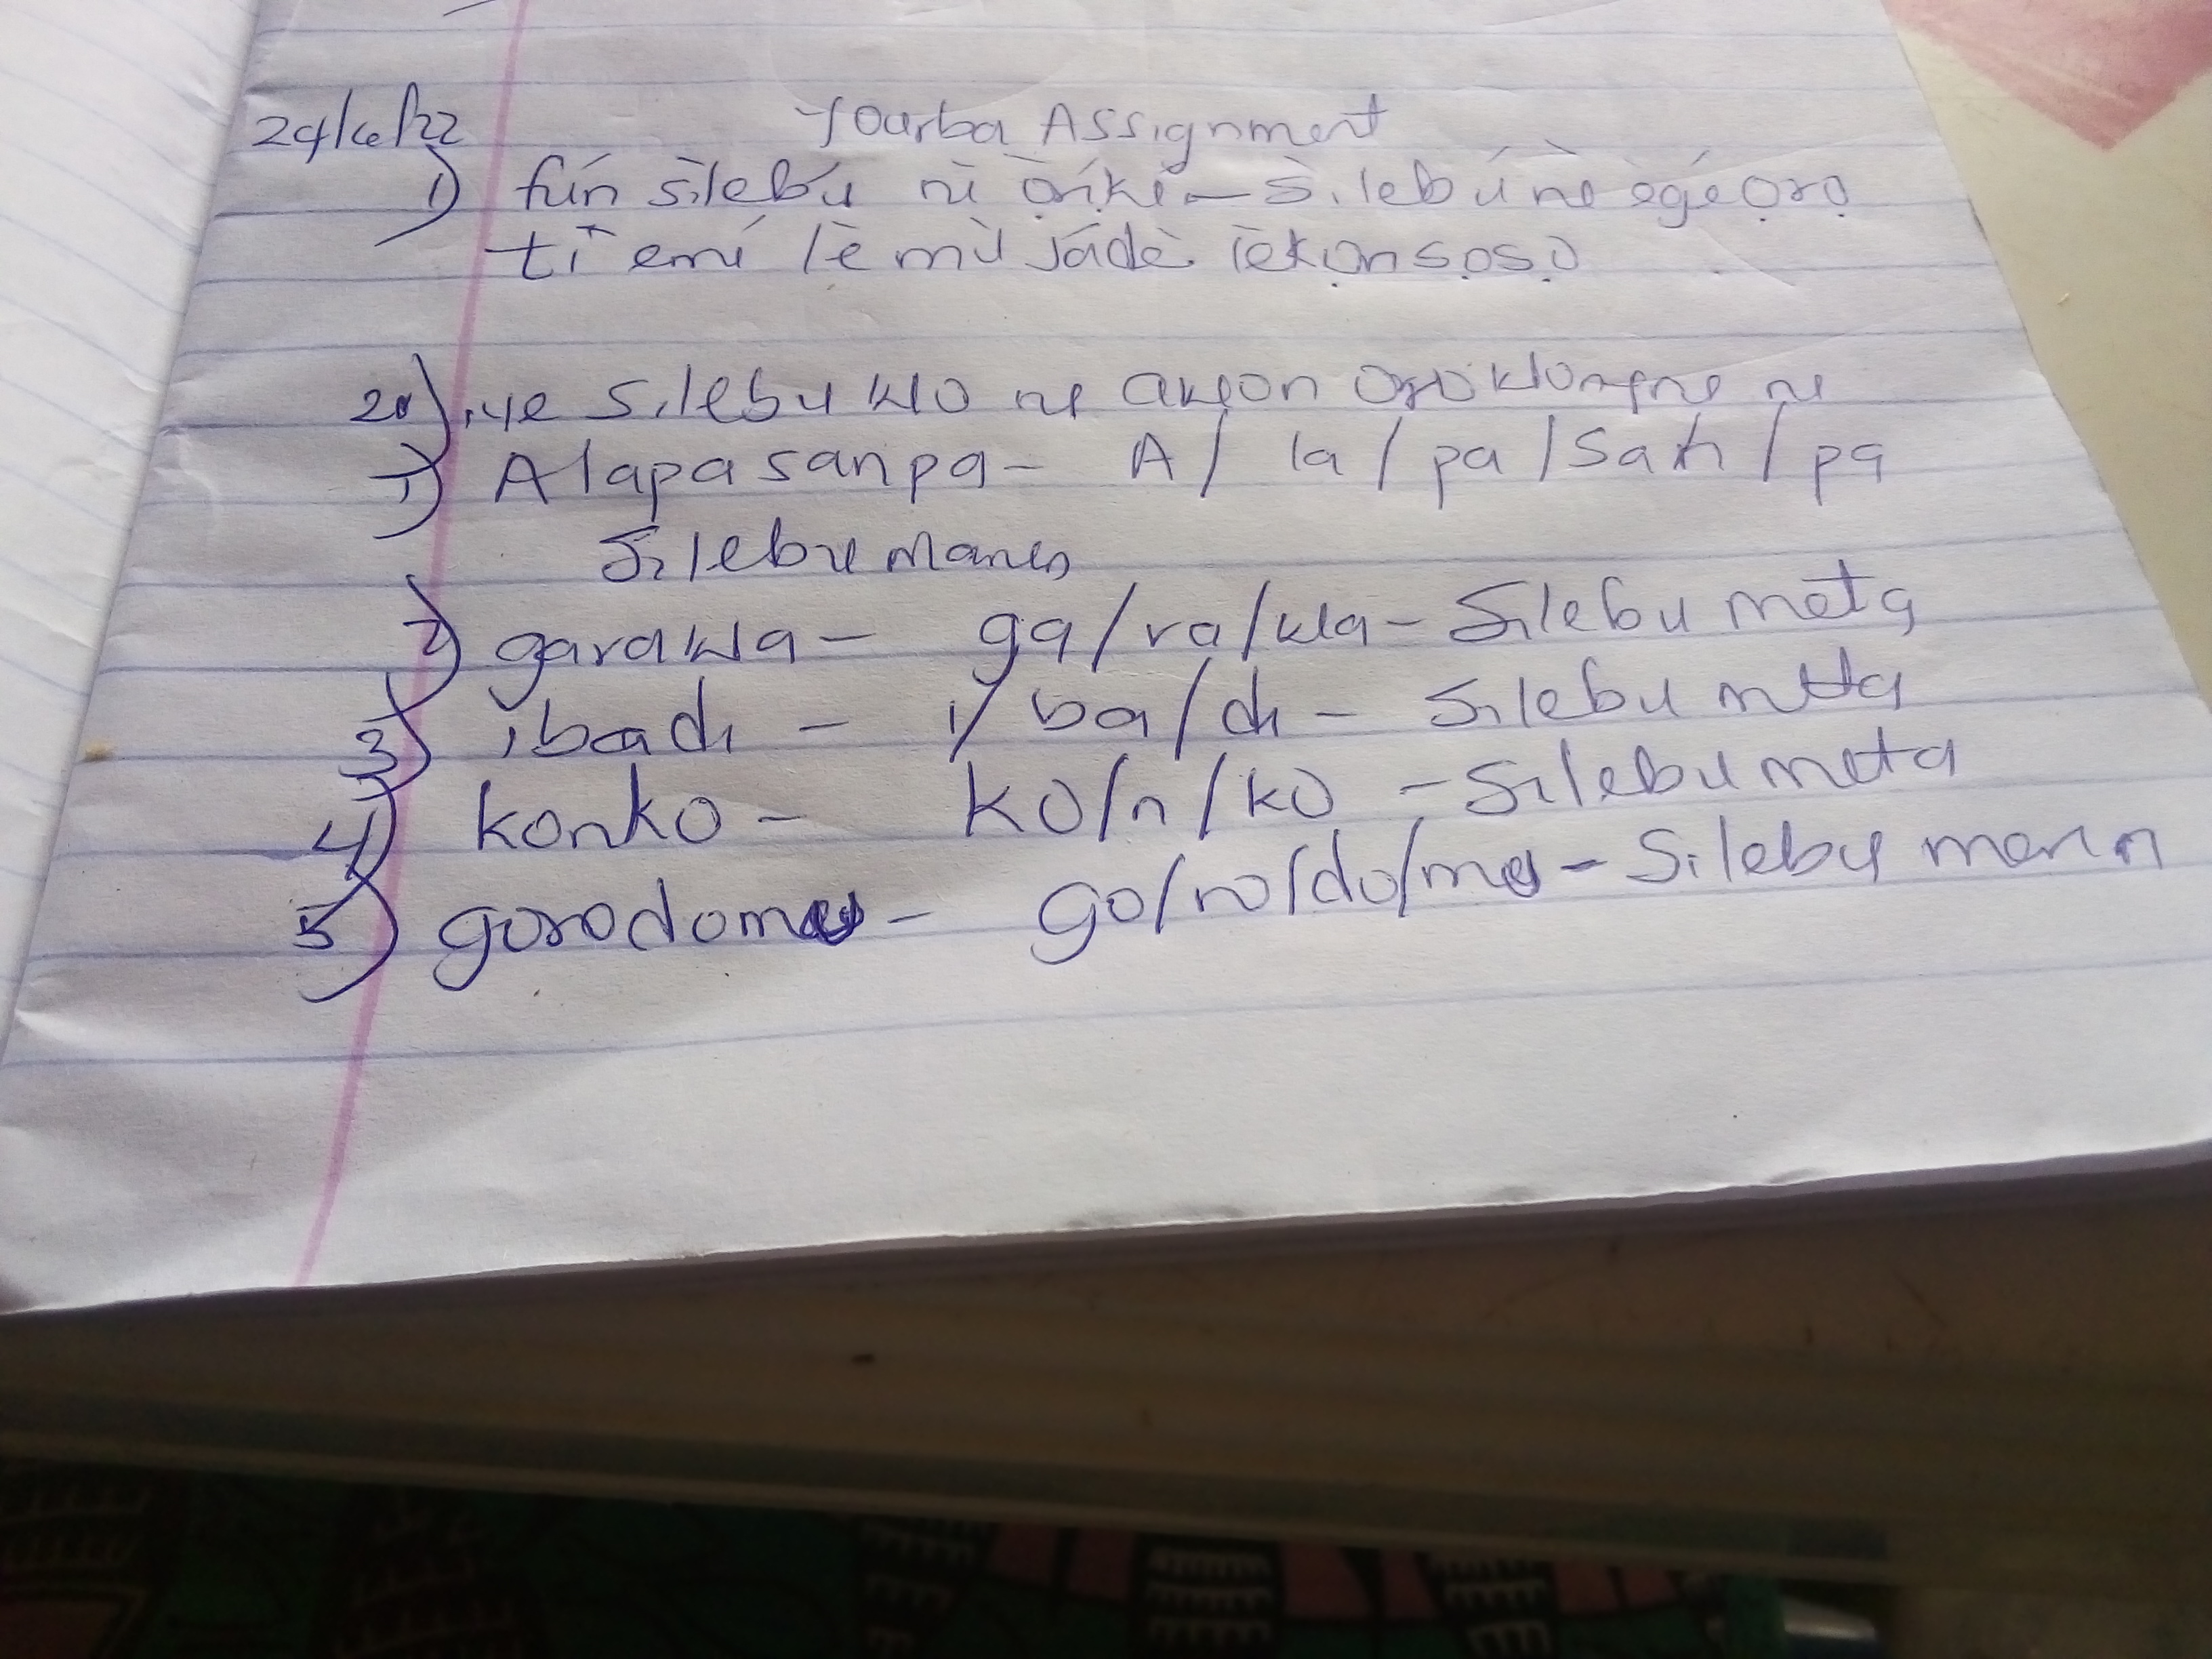 24/6/22 Yourba Assignment
1) fún sílebú ni òríkì - Sílebú ni ègé ọrọ
tí èmí lè mú jáde lẹkọnsoso
2) iye Silebu wo ni awọn ọrọ wonyi ni
1) Alapasanpa - A/ la/ pa/ San/ pa
Silebu marun
2) garawa - ga/ra/wa - Silebu meta
3) ibadi - i/ ba/di - Silebu meta
4) konko - ko/n/ko - Silebu meta
5) gorodomu - go/ro/do/mu - Silebu merin